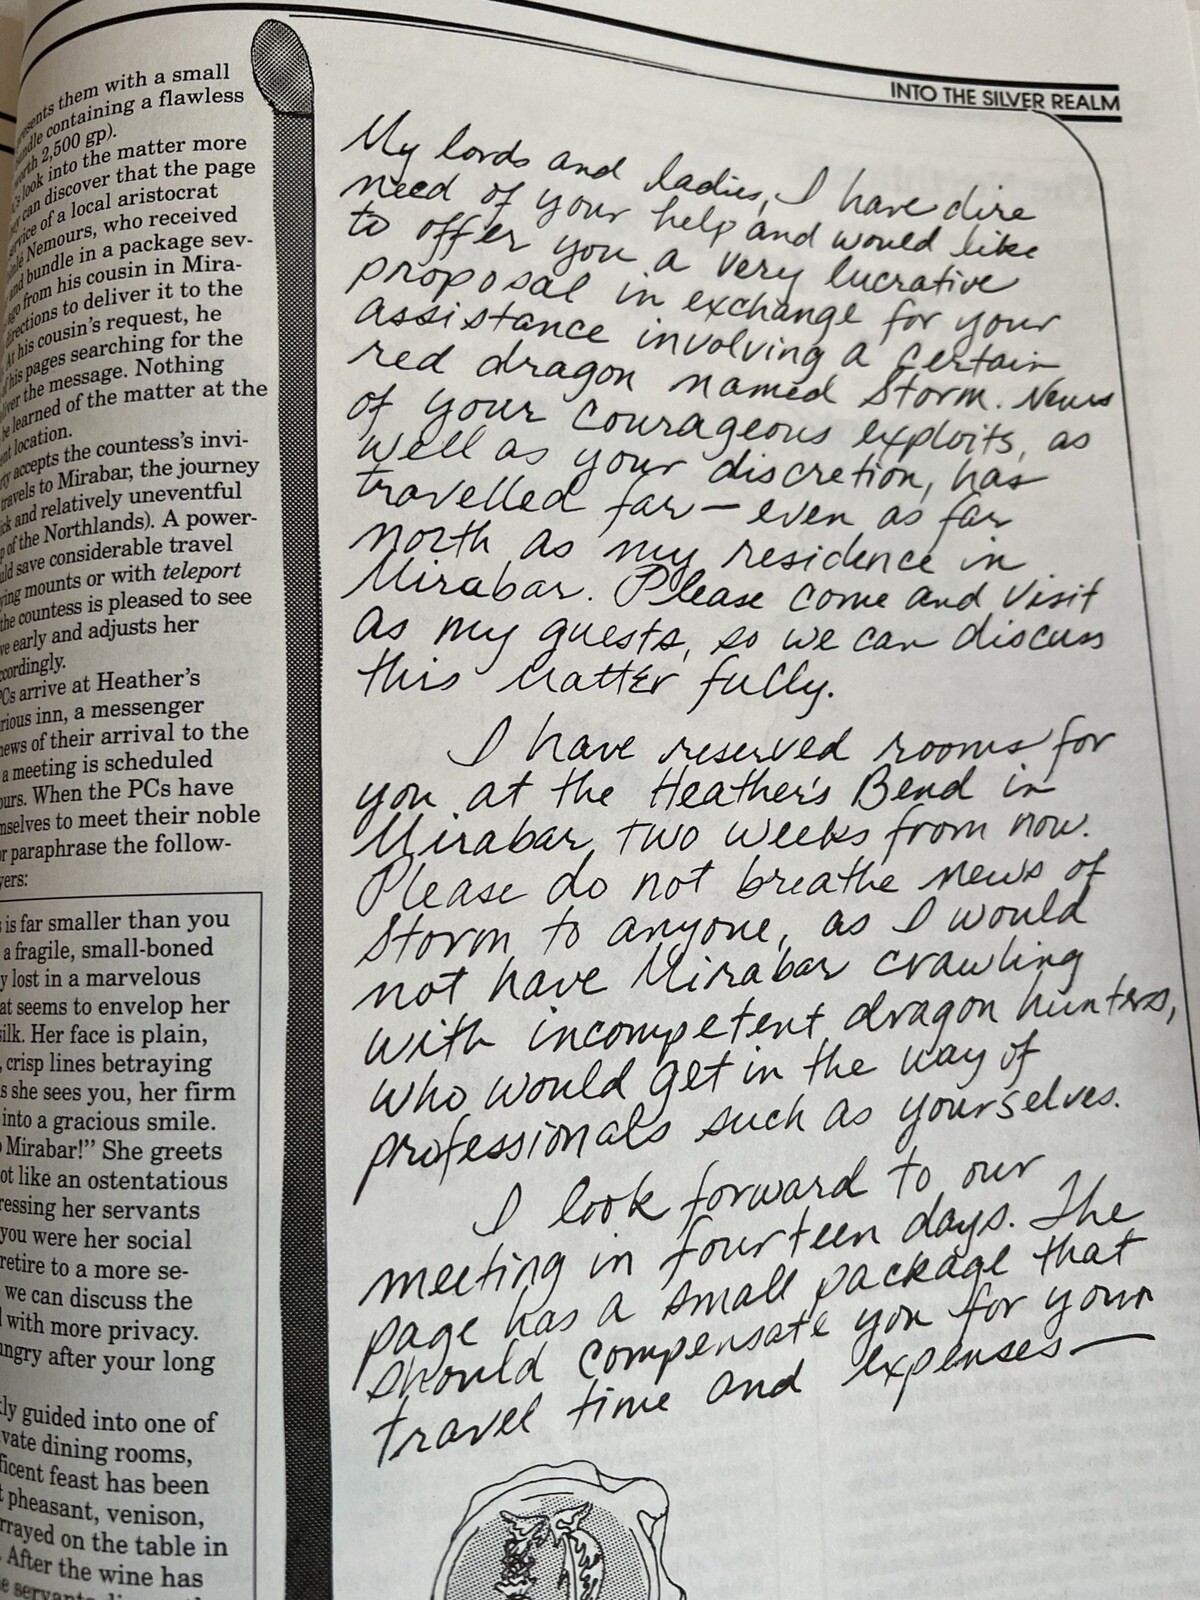 INTO THE SILVER REALM
them with a small
containing a flawless
2,500 gp).
look into the matter more
can discover that the page
of a local aristocrat
Nemours, who received
and bundle in a package sev-
from his cousin in Mira-
directions to deliver it to the
At his cousin's request, he
his pages searching for the
the message. Nothing
be learned of the matter at the
location.
accepts the countess's invi-
travels to Mirabar, the journey
and relatively uneventful
of the Northlands). A power-
save considerable travel
mounts or with teleport
the countess is pleased to see
early and adjusts her
PCs arrive at Heather's
inn, a messenger
news of their arrival to the
a meeting is scheduled
When the PCs have
to meet their noble
or paraphrase the follow-
is far smaller than you
a fragile, small-boned
lost in a marvelous
seems to envelop her
silk. Her face is plain,
crisp lines betraying
she sees you, her firm
into a gracious smile.
Mirabar!" She greets
like an ostentatious
her servants
you were her social
retire to a more se-
we can discuss the
with more privacy.
after your long
guided into one of
dining rooms,
feast has been
pheasant, venison,
on the table in
After the wine has
My lords and ladies, I have dire
need of your help and would like
to offer you a very lucrative
proposal in exchange for your
assistance involving a certain
red dragon named Storm. News
of your courageous exploits, as
well as your discretion, has
travelled far — even as far
north as my residence in
Mirabar. Please come and visit
as my guests, so we can discuss
this matter fully.
I have reserved rooms for
you at the Heather's Bend in
Mirabar two weeks from now.
Please do not breathe news of
Storm to anyone, as I would
not have Mirabar crawling
with incompetent dragon hunters,
who would get in the way of
professionals such as yourselves.
I look forward to our
meeting in fourteen days. The
page has a small package that
should compensate you for your
travel time and expenses —